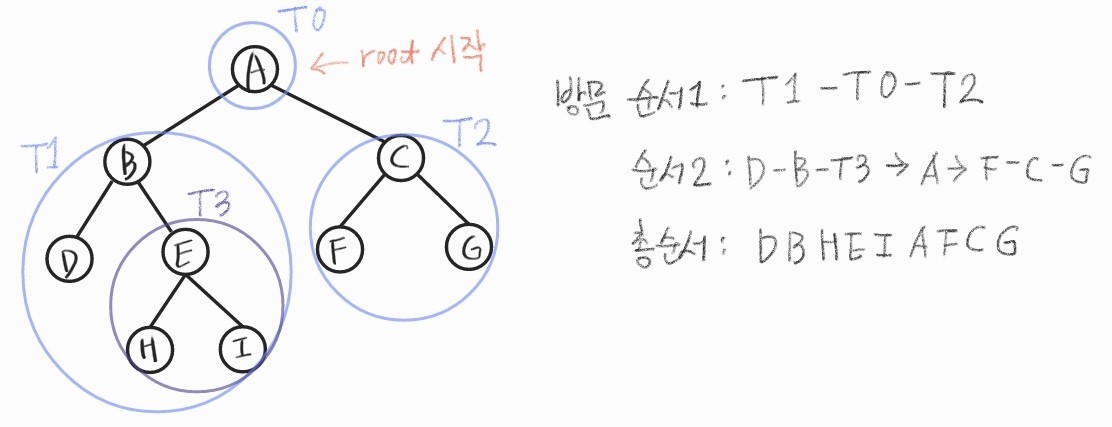 T0
A
← root 시작
T1
B
T2
C
T3
D
E
F
G
H
I
방문 순서1 : T1 - T0 - T2
순서2 : D-B-T3 → A → F-C-G
총순서 : D B H E I A F C G